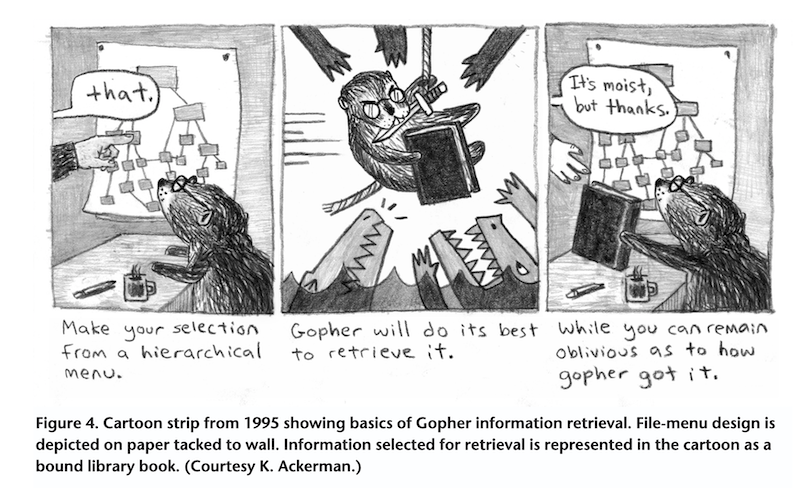 that.
It's moist,
but thanks.
Make your selection
from a hierarchical
menu.
Gopher will do its best
to retrieve it.
While you can remain
oblivious as to how
gopher got it.
Figure 4. Cartoon strip from 1995 showing basics of Gopher information retrieval. File-menu design is
depicted on paper tacked to wall. Information selected for retrieval is represented in the cartoon as a
bound library book. (Courtesy K. Ackerman.)